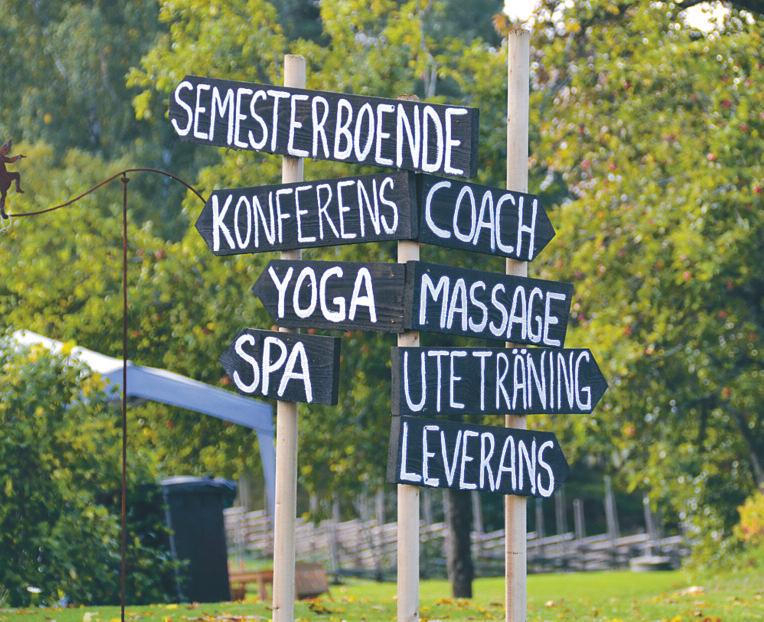 SEMESTERBOENDE
KONFERENS COACH
YOGA MASSAGE
SPA UTETRÄNING
LEVERANS